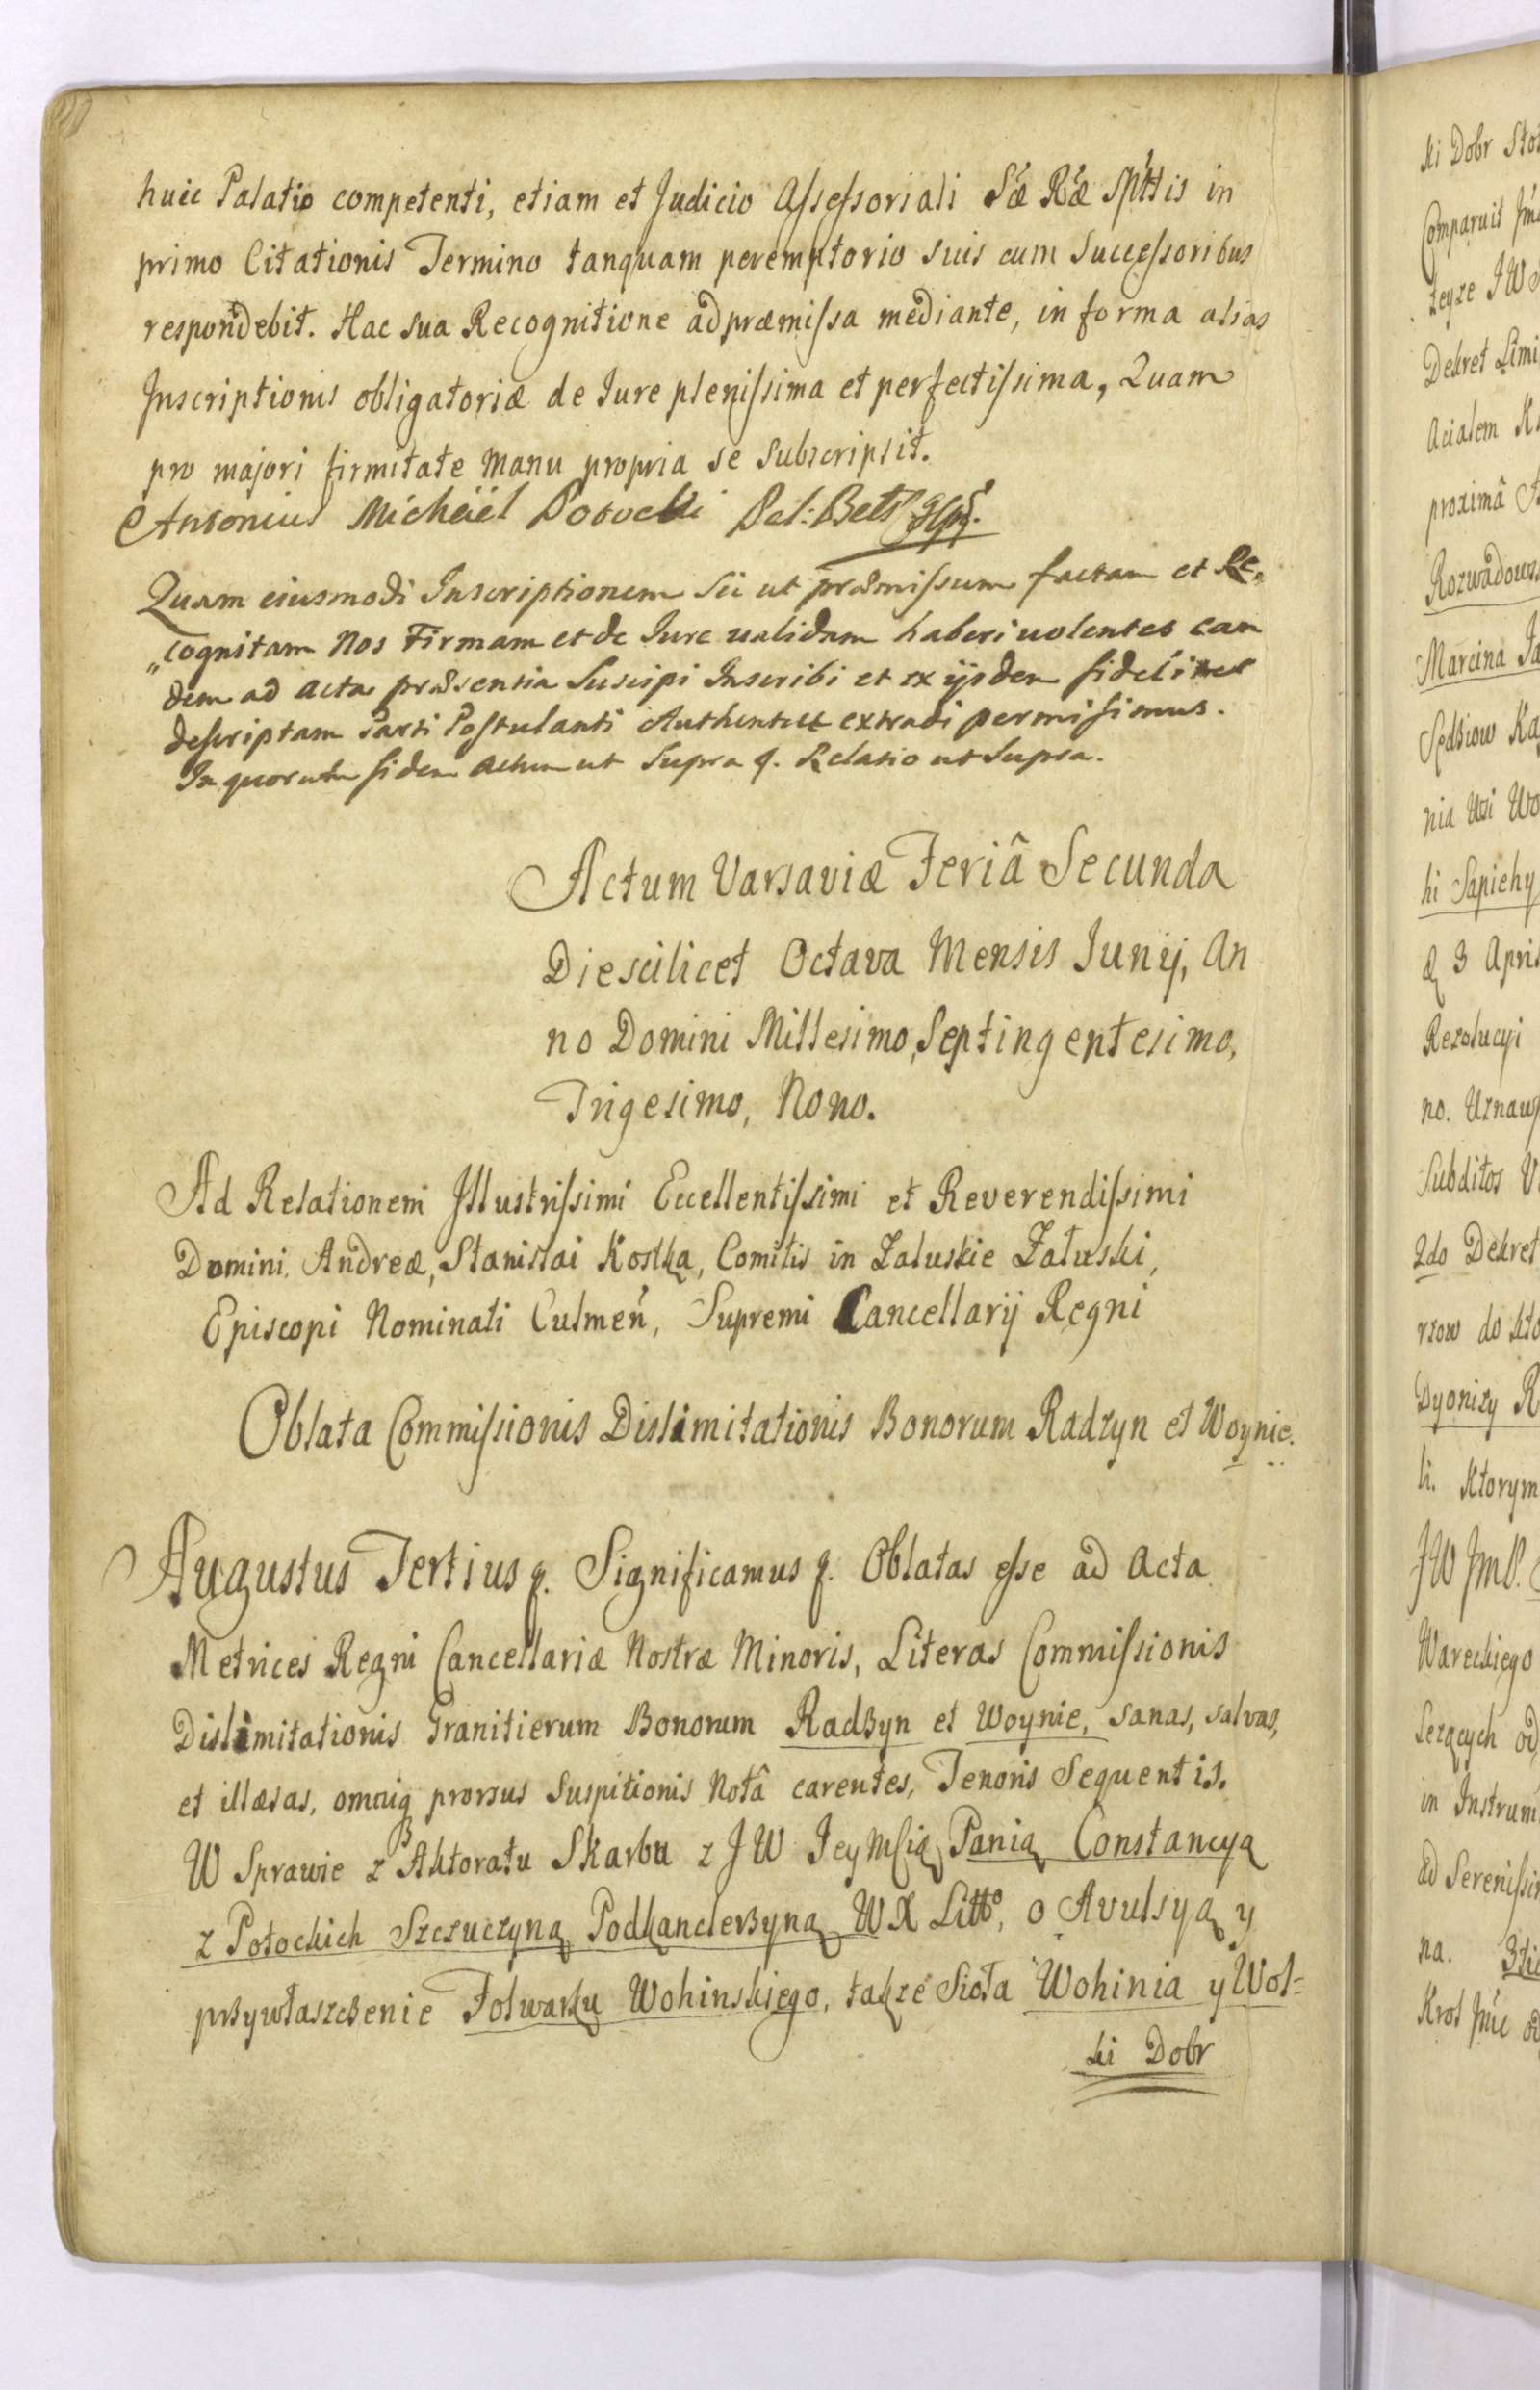 huic Palatio competenti, etiam et Judicio Assessoriali Sæ Ræ Spttis in
primo Citationis Termino tanquam peremptorio suis cum Successoribus
respondebit. Hac sua Recognitione ad præmissa mediante, in forma alias
Inscriptionis obligatoriæ de Jure plenissima et perfectissima, Quam
pro majori firmitate manu propria se subscripsit.
Antonius Michäel Potocki Pal: Bels
Quam eiusmodi Inscriptionem sic ut præmissum factam et Re„
„cognitam Nos Firmam et de Jure validam haberi uolentes ean
dem ad acta præsentia Suscipi Inscribi et ex ijsdem fideliter
descriptam Parti Postulanti Authentice extradi permisimus.
In quorum fidem Actum ut Supra q. Relatio ut Supra.
Actum Varsaviæ Feriâ Secunda
Die scilicet Octava Mensis Junij, An
no Domini Millesimo, Septingentesimo,
Trigesimo, Nono.
Ad Relationem Illustrissimi Eccellentissimi et Reverendissimi
Domini, Andreæ, Stanislai Kostka, Comitis in Zaluskie Załuski,
Episcopi Nominati Culmeń, Supremi Cancellarij Regni
Oblata Commissionis Dislimitationis Bonorum Radzyn et Woynie.
Augustus Tertius q. Significamus q. Oblatas esse ad Acta
Metrices Regni Cancellariæ Nostræ Minoris, Literas Commissionis
Dislimitationis Granitierum Bonorum Radzyn et Woynie, sanas, salvas,
et illæsas, omniq prorsus Suspitionis Notâ carentes, Tenoris Sequentis.
W Sprawie z Aktoratu Skarbu z JW JeyMscią Panią Constancyą
z Potockich Szczuczyną Podkanclerzyną WX Litto, o Avulsyą y
przywłaszczenie Folwarku Wohinskiego, także Sioła Wohinia y Wol=
ki Dobr
ki Dobr
Comparuit
teyze JW
Dekret
acialem
proximâ
Marcina
nia Wsi
hi Sapiehy
3
Rezolucyi
no.
Subditos
2do Dekret
rzow do
Dyonizy
li. Ktorym
JW JmP.
Wareckiego
in
ad
na.
Krol